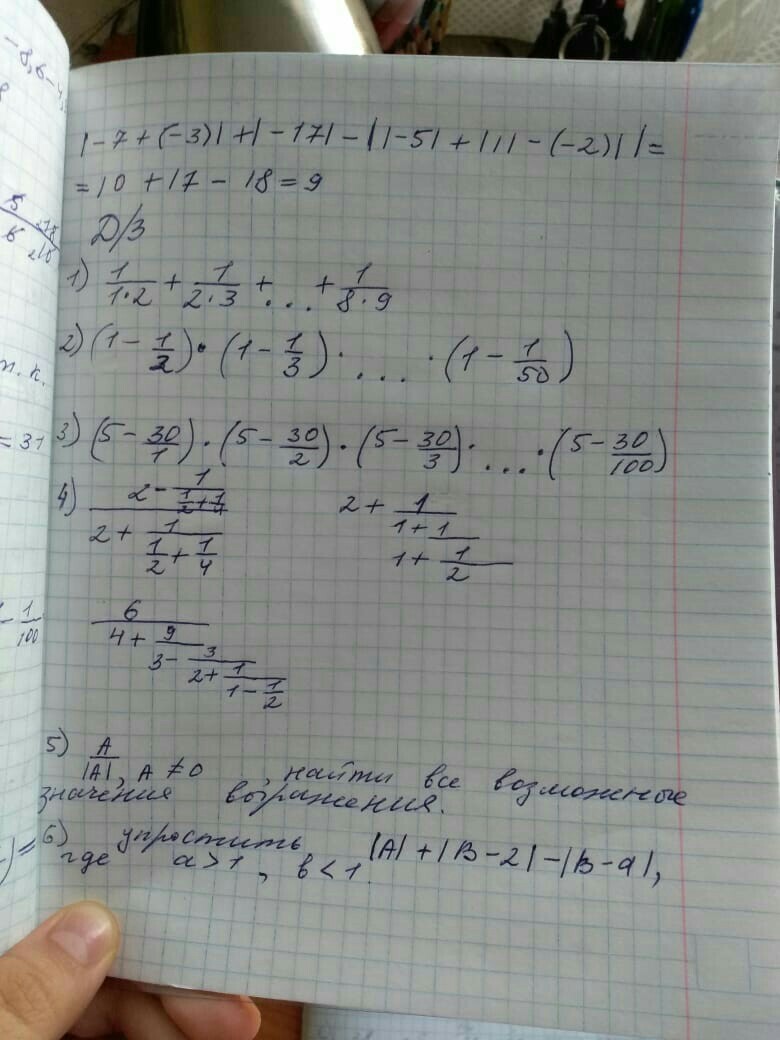 |-7+(-3)|+|-17|-||-5|+|11|-(-2)||=
=10+17-18=9
Д/З
1) 1/(1·2) + 1/(2·3) + ... + 1/(8·9)
2) (1 - 1/2) · (1 - 1/3) · ... · (1 - 1/50)
3) (5 - 30/1) · (5 - 30/2) · (5 - 30/3) · ... · (5 - 30/100)
4) (2 - 1/(1/2 + 1/4)) / (2 + 1/(1/2 + 1/4))   2 + 1/(1 + 1/(1 + 1/2))
6/(4 + 9/(3 - 3/(2 + 1/(1 - 1/2))))
5) A/|A|, A ≠ 0, найти все возможные
значения выражения.
6) упростить |A|+|B-2|-|B-a|,
где a>1, в<1